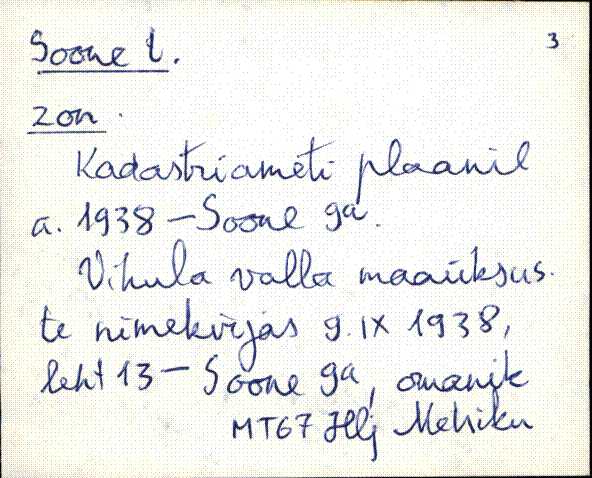 Soone t. 3
zon.
Kadastriameti plaanil
a. 1938 – Soone ga.
Vihula valla maaüksus-
te nimekirjas 9.IX 1938,
leht 13 – Soone ga, omanik
MT67 Hlj Mehiku